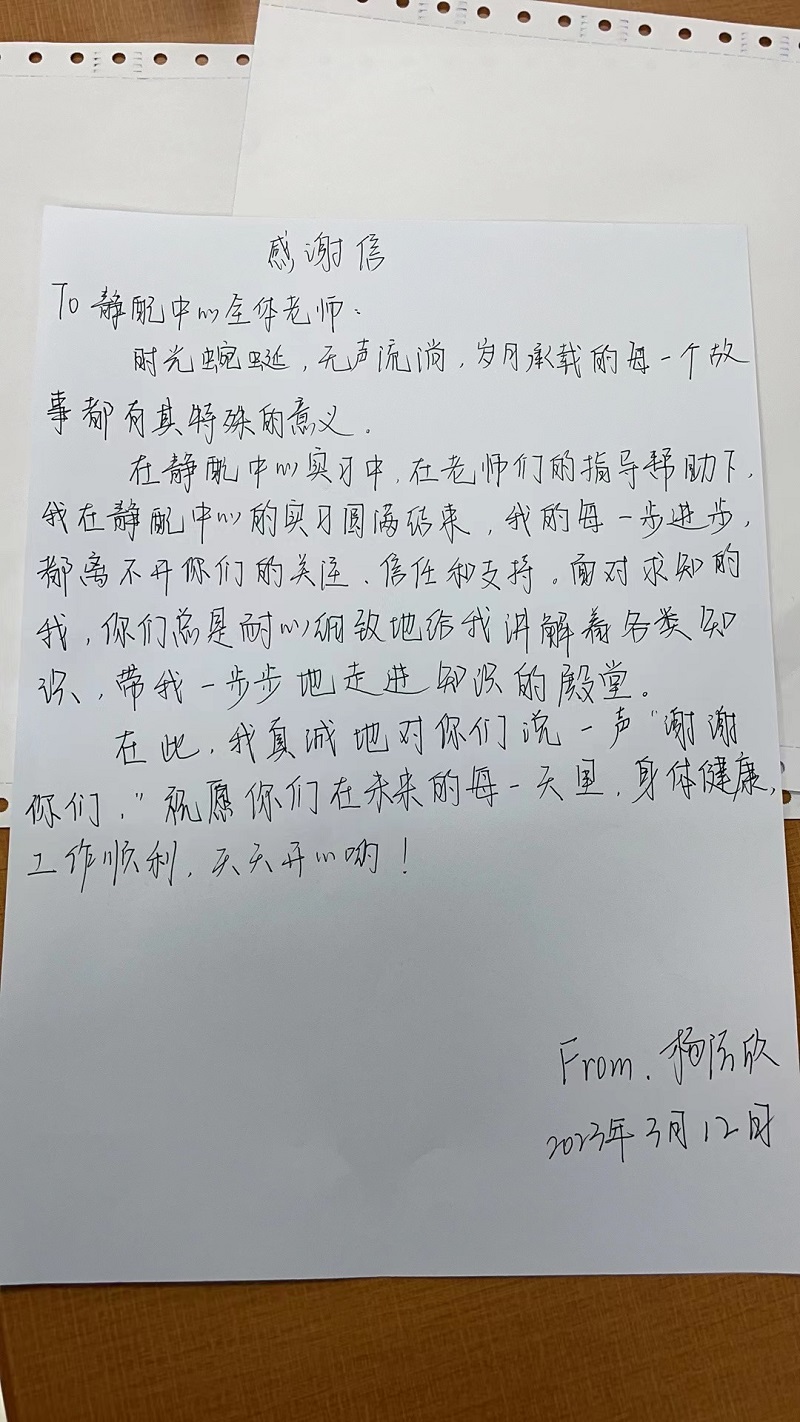 感谢信
To 静配中心全体老师：
时光蜿蜒，无声流淌，岁月承载的每一个故
事都有其特殊的意义。
在静配中心实习中，在老师们的指导帮助下，
我在静配中心的实习圆满结束，我的每一步进步，
都离不开你们的关注、信任和支持。面对求知的
我，你们总是耐心细致地给我讲解着各类知
识、带我一步步地走进知识的殿堂。
在此，我真诚地对你们说一声“谢谢
你们，”祝愿你们在未来的每一天里，身体健康，
工作顺利，天天开心哟！
From. 杨欣
2023年3月12日